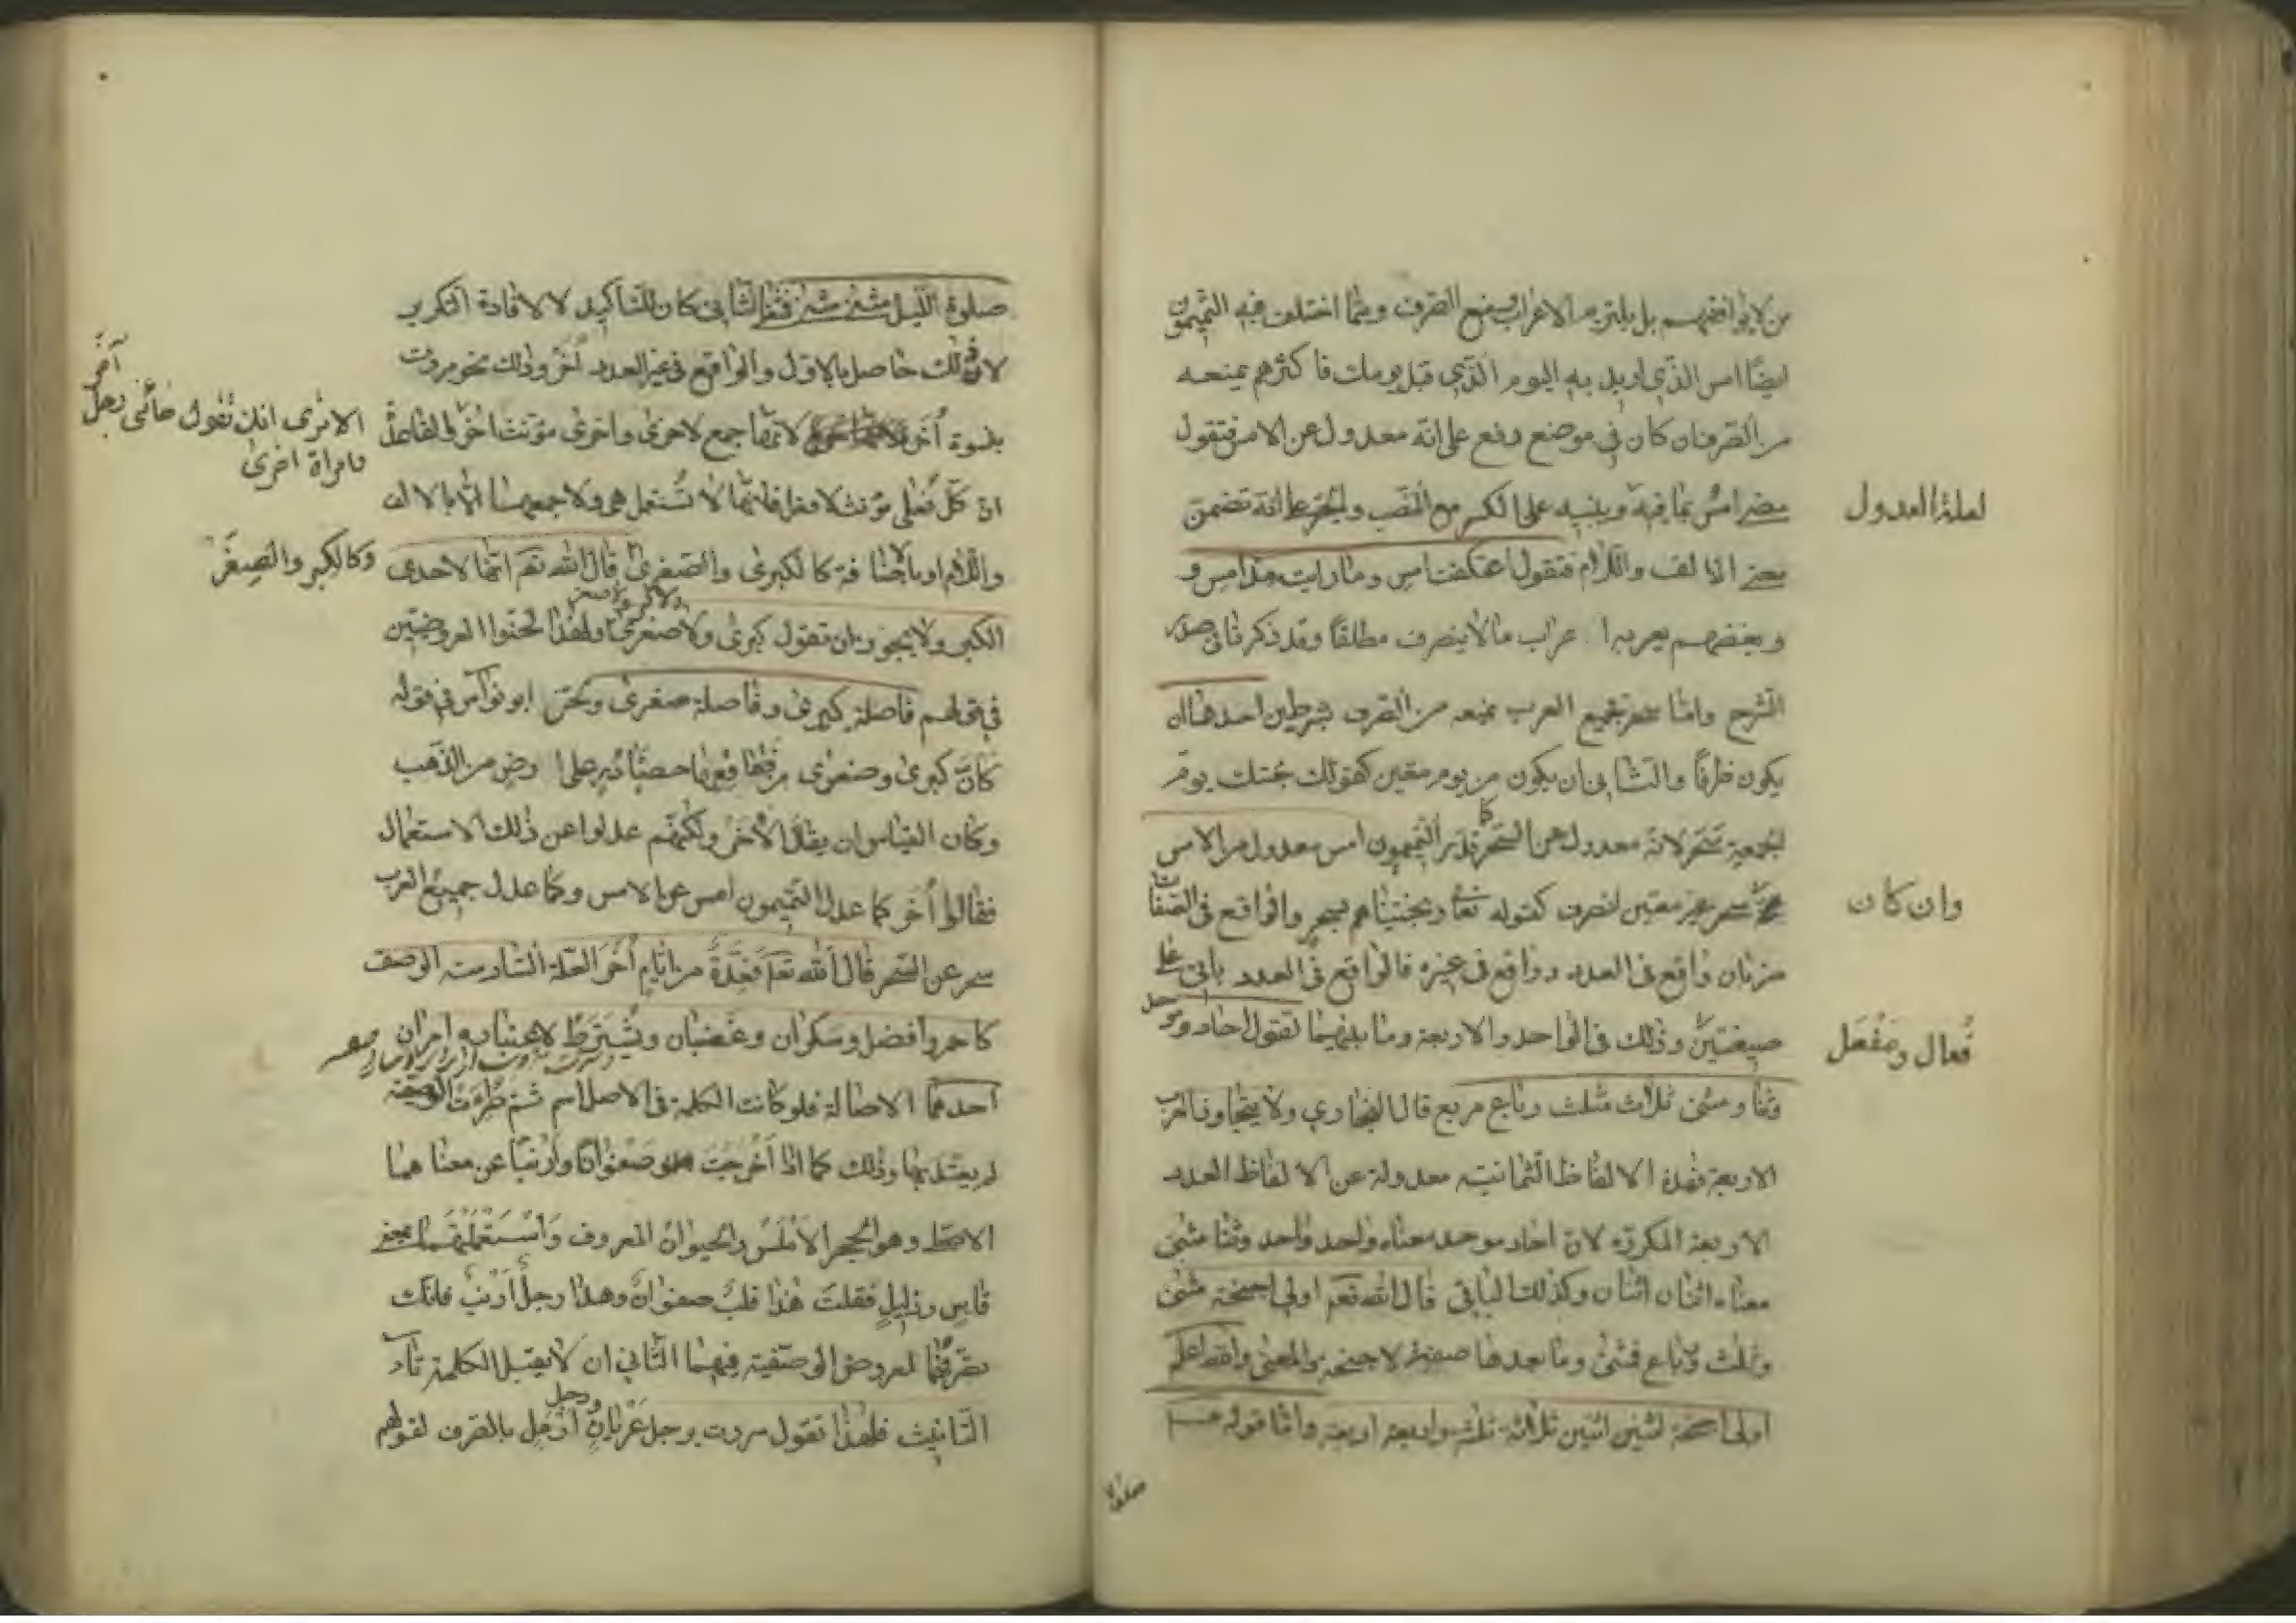 من لا يوافقهم بل يلتزم الاعراب ومنع الصرف ومما اختلف فيه التميميون
ايضًا امس الذي اريد به اليوم الذي قبل يومك فاكثرهم يمنعه
من الصرف ان كان في موضع رفع على انه معدول عن الامس فتقول
مضى امسُ بما فيه ويبنيه على الكسر مع النصب والجر على انه تضمن
لعلة العدول
معنى الالف واللام فتقول اعتكفت امس وما رايت مذ امس و
وبعضهم يعربه اعراب ما لا ينصرف مطلقًا وقد ذكرنا في صدر
الشرح واما سحر فجميع العرب يمنعه من الصرف بشرطين احدهما ان
يكون ظرفًا والثاني ان يكون من يوم معين كقولك جئتك يوم
الجمعة سحر لانه معدول عن السحر كما قدر التميميون امس معدول من الامس
وان كان
سحر غير معين انصرف كقوله تعا ونجيناهم بسحر والواقع في الصفات
ضربان واقع في العدد وواقع في غيره فالواقع في العدد ياتي على
صيغتين وذلك في الواحد والاربعة وما بينهما تقول احاد وموحد
فُعال ومَفْعَل
وثنا ومثنى ثلاث مثلث رباع مربع قال البخاري ولا يتجاوز العرب
الاربعة فهذه الالفاظ الثمانية معدولة عن الالفاظ العدد
الاربعة المكررة لان احاد موحد معناه واحد واحد وثنا مثنى
معناه اثنان اثنان وكذلك الباقي قال الله تعم اولي اجنحة مثنى
وثلث ورباع فمثنى وما بعدها صفة لاجنحة والمعنى والله اعلم
اولى اجنحة اثنين اثنين ثلاثة ثلثة واربعة اربعة واما قوله عم
صلوة
صلوة الليل مثنى مثنى فمثنى الثاني كان للتاكيد لا لافادة التكرير
لان ذلك حاصل بالاول والواقع في غير العدد أُخَرُ وذلك نحو مررت
بنسوة أُخَر لانها جمع لاخرى واخرى مؤنث اخر
الا ترى انك تقول جائني رجل آخر
وامراة اخرى
ان كل فُعلى مؤنث لافعل فانها لا تُستعمل هي ولا جمعهما الا بالالف
واللام او بالاضافة كالكبرى والصغرى قال الله تعم انها لاحدى
وكالكُبر والصغَر
الكبر ولا يجوز ان تقول كبرى ولا صغرى ولهذا لحنوا العروضيين
في قولهم فاصلة كبرى وفاصلة صغرى ولحن ابو نواس في قوله
كانّ كبرى وصغرى من فقاقعها حصباء در على ارض من الذهب
وكان القياس ان يقال الأخَر ولكنهم عدلوا عن ذلك الاستعمال
فقالوا أُخَر كما عدل التميميون امس عن الامس وكما عدل جميع العرب
سحر عن السحر قال الله تعم فعِدَّةٌ من ايام أُخَر العلة السادسة الوصف
كاحمر وافضل وسكران وغضبان ويُشتَرط لاعتباره امران
احدهما الاصالة فلو كانت الكلمة في الاصل اسم ثم طرءت الوصفية
لم يعتد بها وذلك كما اذا اخرجت صفوانًا وارنبًا عن معناهما
الاصلى وهو الحجر الاملس والحيوان المعروف واستعملتهما بمعنى
قاسٍ وذليلٍ فقلتَ هذا قلبٌ صفوانٌ وهذا رجلٌ ارنبٌ فانك
تصرفهما لعروض الوصفية فيهما الثاني ان لا يقبل الكلمة تاء
التانيث فلهذا تقول مررت برجل عريانٍ ورجل ارملٍ بالصرف لقولهم